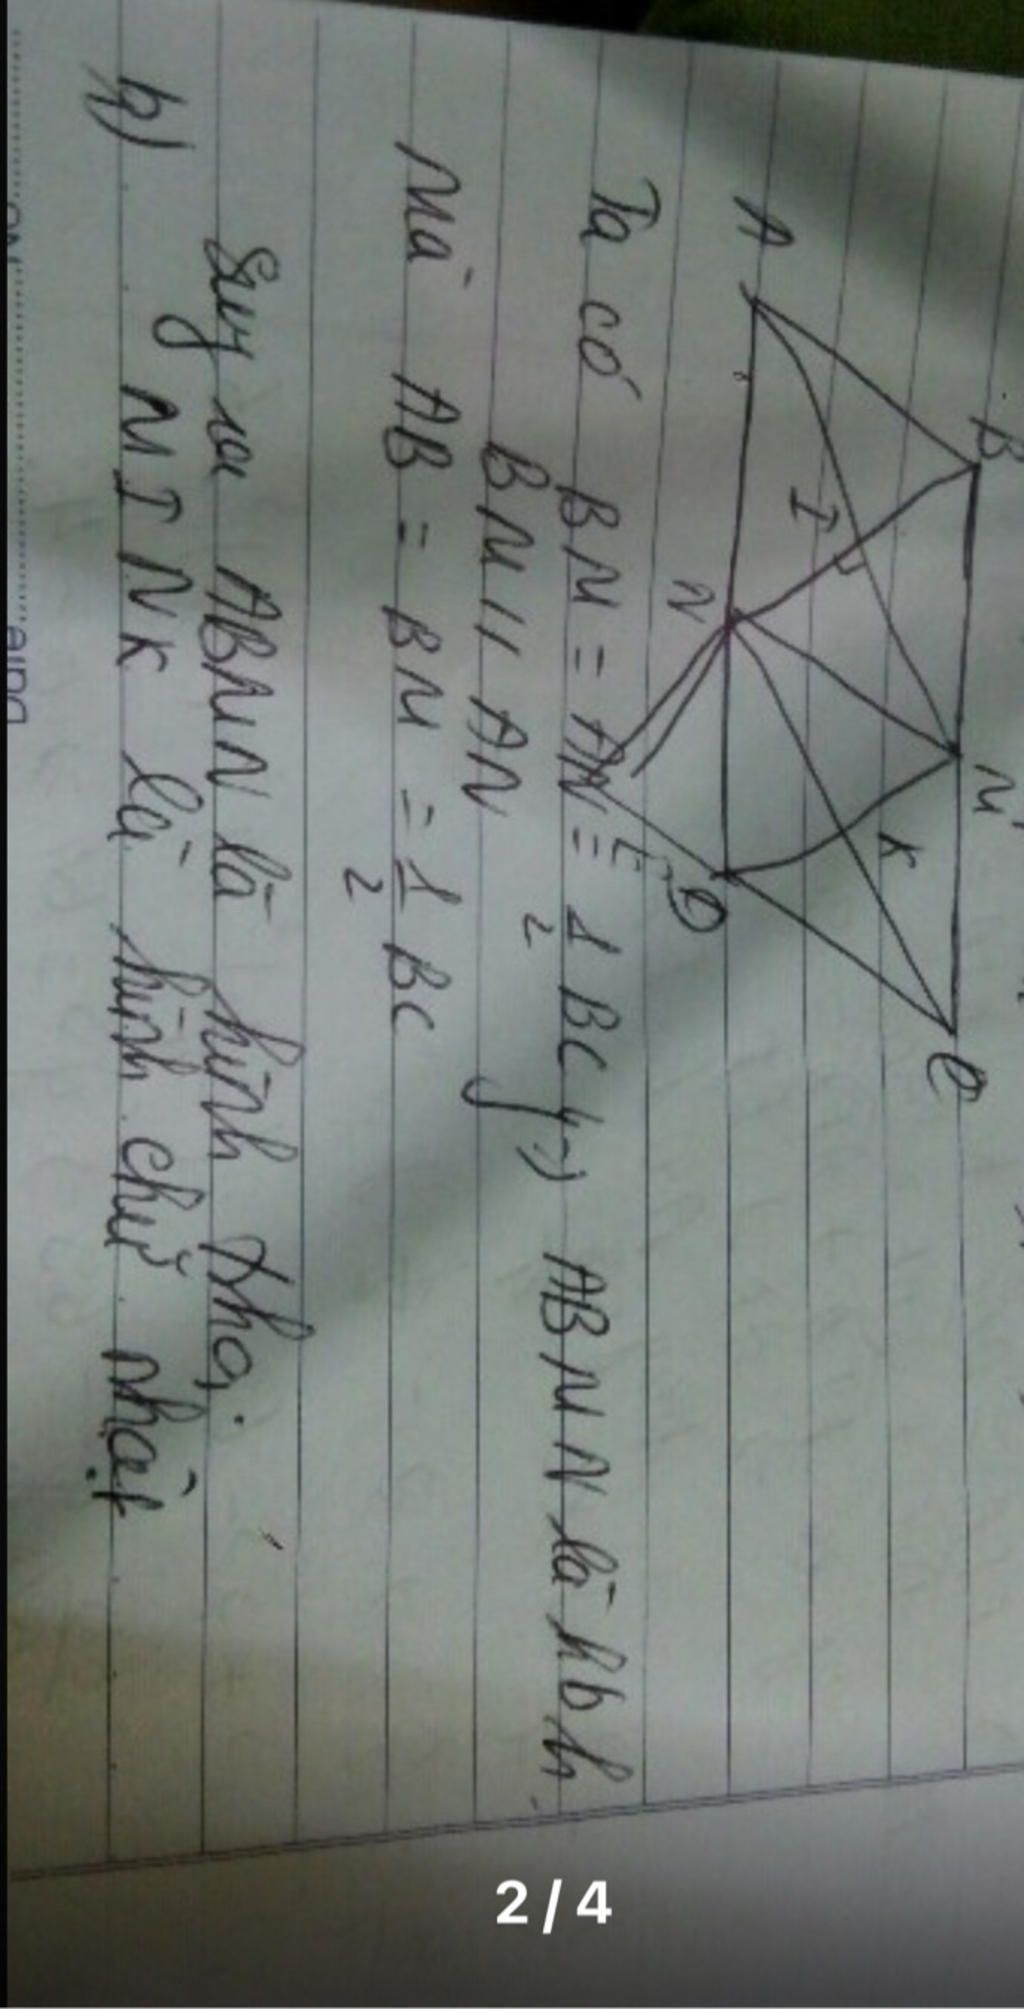 B
M
C
A
I
K
N
D
E
Ta có BM = AN = 1/2 BC } → ABMN là hbh
BM // AN
Mà AB = BM = 1/2 BC
Suy ra ABMN là hình thoi.
b) MINK là hình chữ nhật
2/4